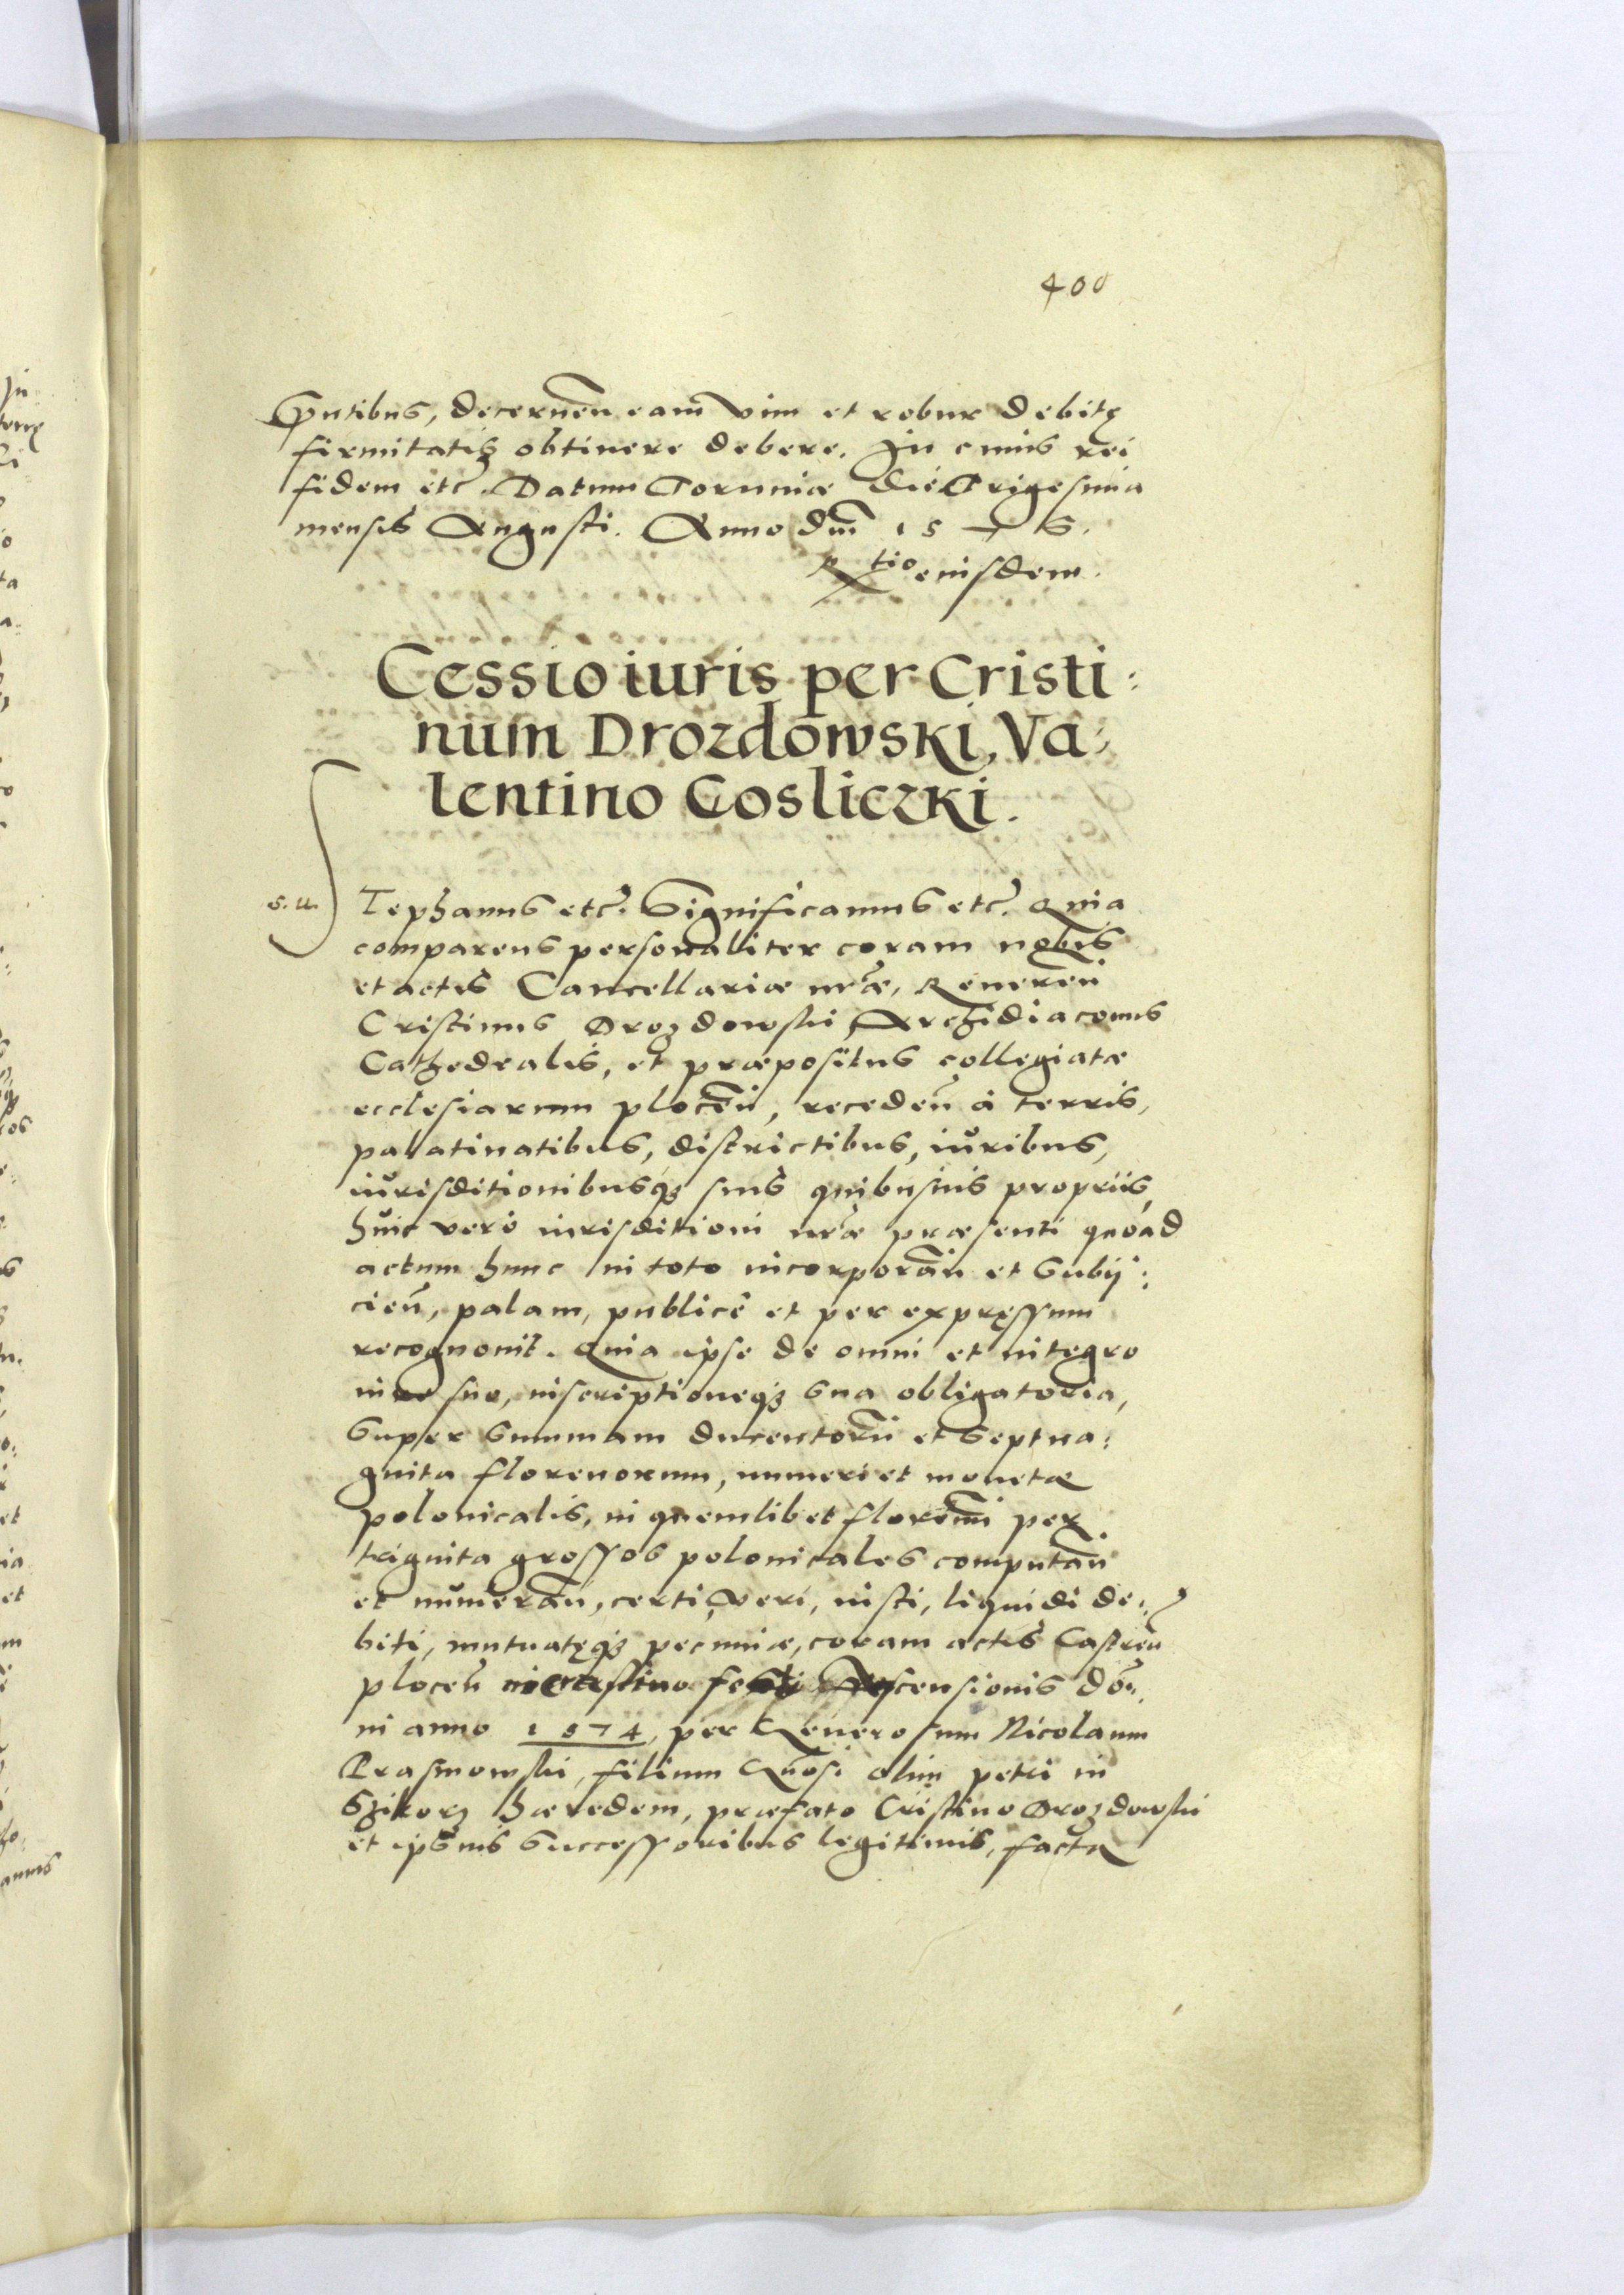 400
Sntibus, decernen̄ eam̄ vim et robur debitę
firmitatis obtinere debere. In cuius rei
fidem etc̄. Datum Toruniæ die Trigesima
mensis Augusti. Anno Dn̄i 1576.
Rtio eiusdem.
Cessio iuris per Cristi:
num Drozdowski, Va:
lentino Cosliczki.
Stephanus etc̄. Significamus etc̄. Quia
comparens personaliter coram nobis
et actis Cancellariæ nr̄æ, Veneren̄
Cristinus Drozdowski Archidiaconus
Cathedralis, et præpositus collegiatæ
ecclesiarum plocen̄, receden̄ à terris,
palatinatibus, districtibus, iŭribus,
iŭrisditionibusq3 suis quibusuis propriis,
hŭic verò iurisditioni nr̄æ præsenti quoad
actum hunc in toto incorporan̄ et subij:
cien̄, palam, publicè et per expręssum
recognouit. Quia ipse de omni et intęgro
iure suo, inscriptioneq3 sua obligatoria,
super summam ducentorū et septua:
ginta florenorum, numeri et monetæ
polonicalis, in quemlibet floren̄ per
triginta grossos polonicales computan̄
et nŭmeran̄, certi, veri, iusti, liquidi de:
biti, mutuatęq3 pecuniæ, coram actis Castren̄
plocen̄ in crastino festi Ascensionis Do:
ni anno 1574, per Generosum Nicolaum
Prasmowski, filium Gn̄osi olim petri in
Szikorz hæredem, præfato Cristino Drozdowski
et ipsius successoribus legitimis, facta